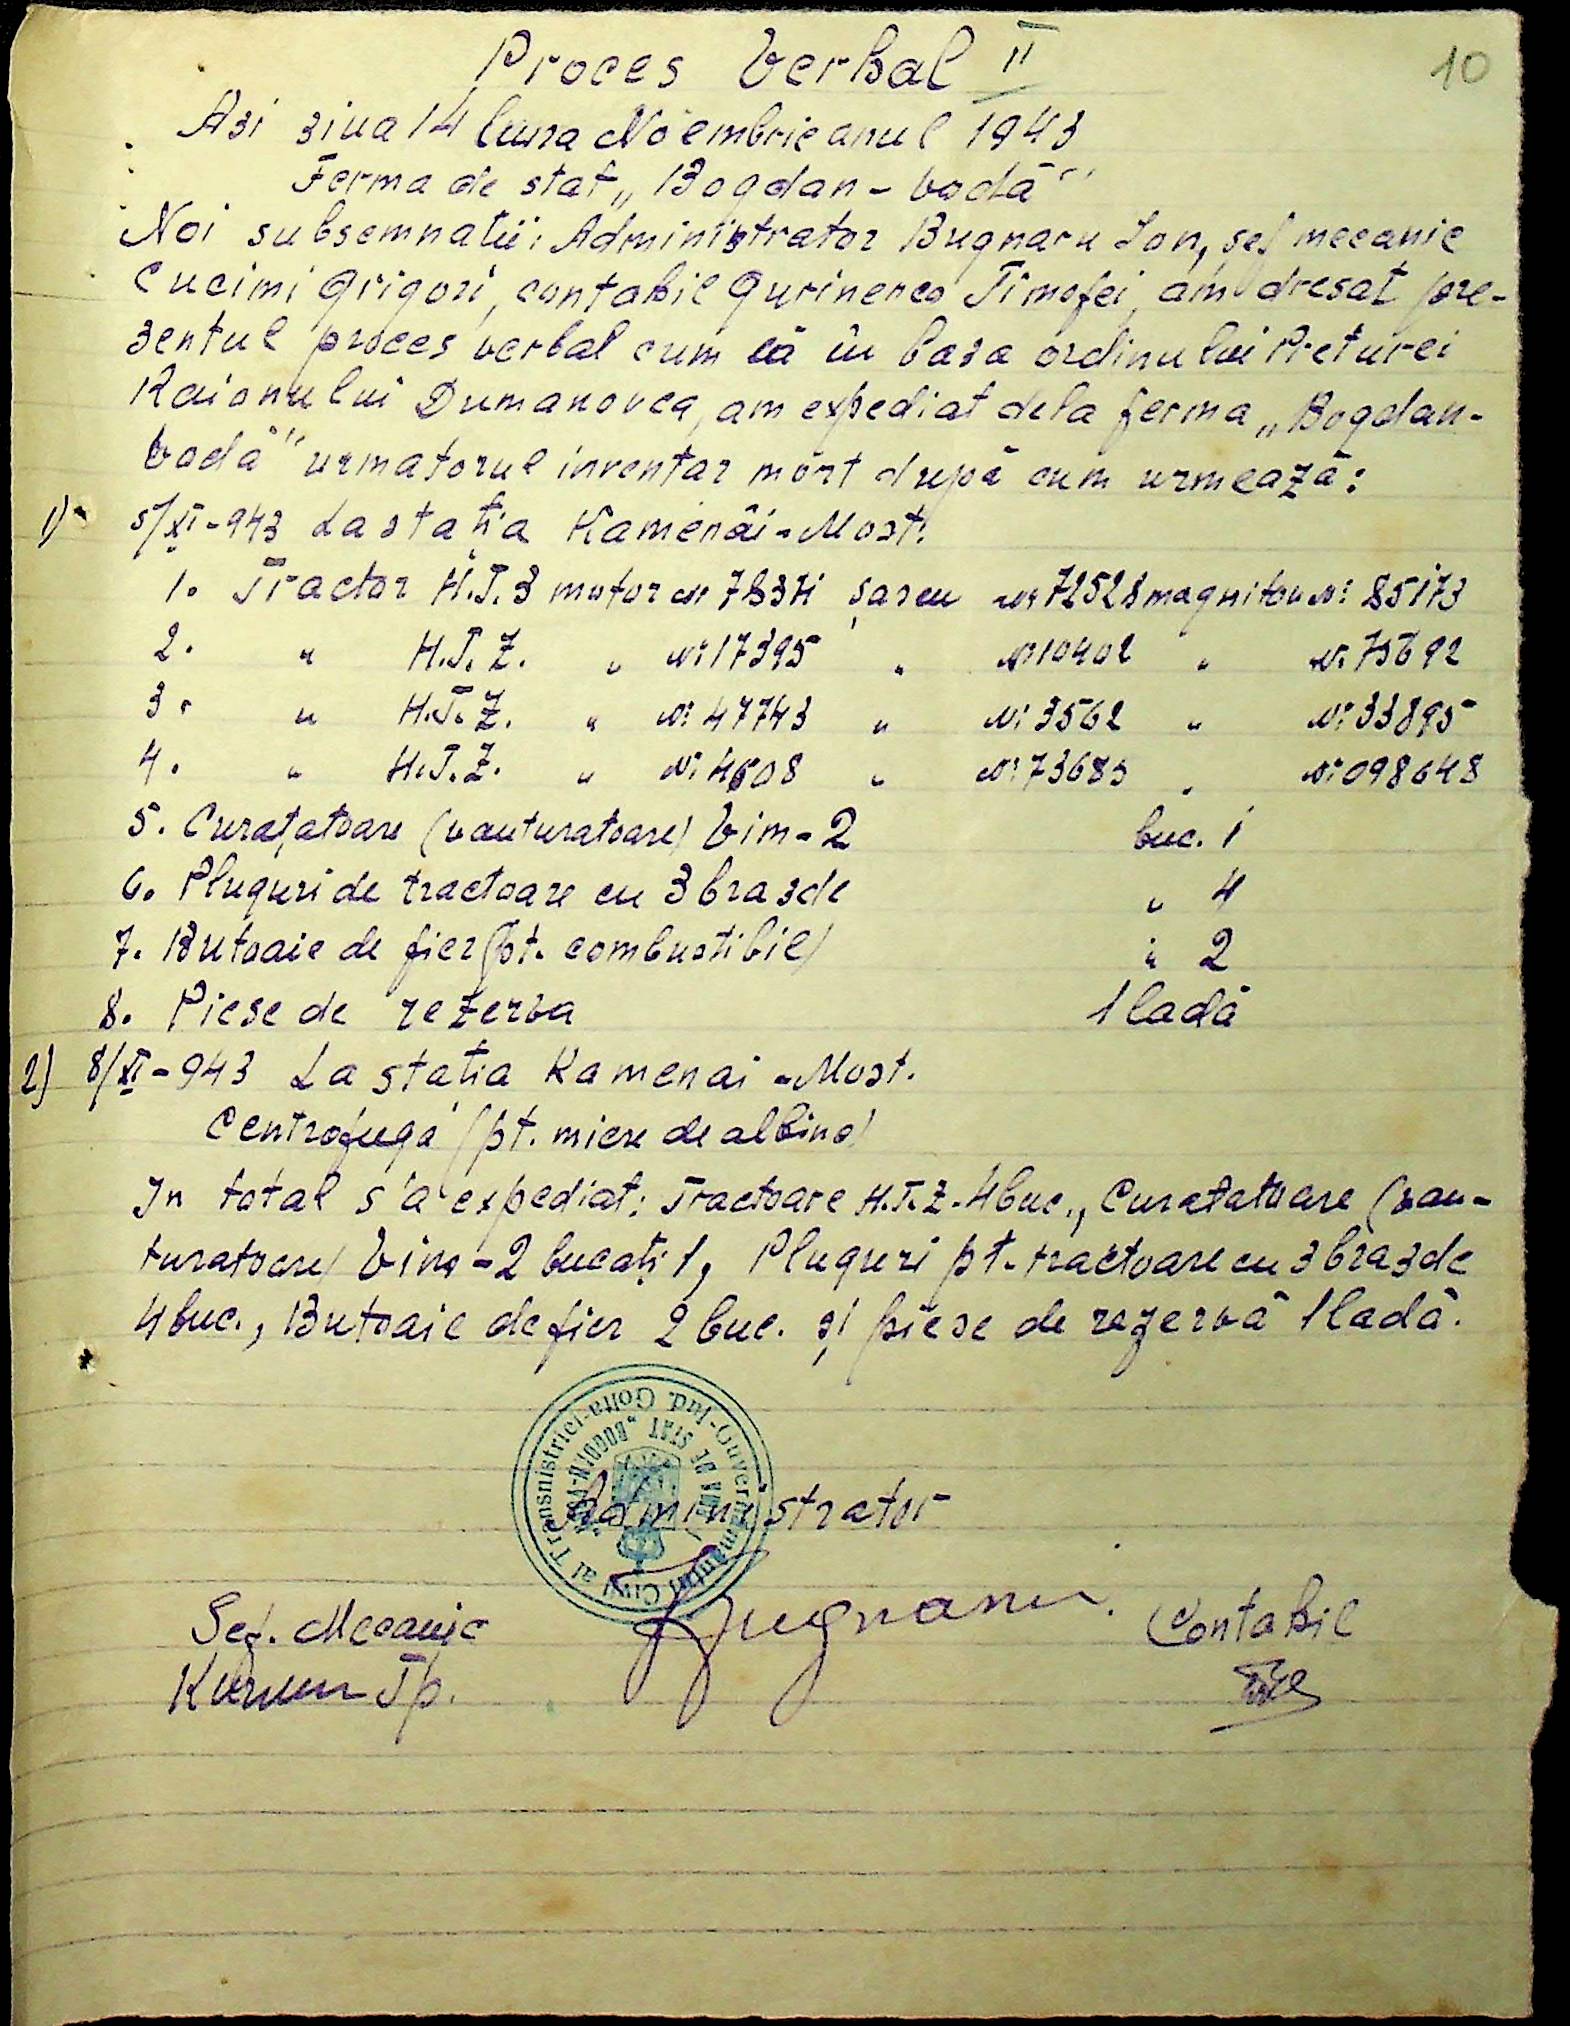 10
Proces Verbal II
Asi ziua 14 luna Noembrie anul 1943
Ferma de stat „Bogdan-vodă"
Noi subsemnații: Administrator Bugnaru Ion, șef mecanic
Cucimi Grigori, contabil Gurinenco Timofei, am dresat pre-
zentul proces verbal cum că în baza ordinului Preturei
Raionului Dumanovca, am expediat dela ferma „Bogdan-
vodă" urmatorul inventar mort după cum urmează:
1) 5/XI-943 La stația Kamenâi-Most.
1. Tractor H.T.3 motor Nr șaseu Nr 72528 magnitou Nr 85173
2. " H.T.Z. " Nr 17395 " Nr 10402 " Nr 75692
3. " H.T.Z. " Nr 47743 " Nr 3562 " Nr 33895
4. " H.T.Z. " Nr 4608 " Nr 73685 " Nr 098648
5. Curațatoare (vanturatoare) Vim-2 buc. 1
6. Pluguri de tractoare cu 3 brazde " 4
7. Butoaie de fier (pt. combustibil) " 2
8. Piese de rezerva 1 ladă
2) 8/XI-943 La stația Kamenai-Most.
Centrofuga (pt. miere de albine)
In total s'a expediat: Tractoare H.T.Z.-4 buc., Curatatoare (van-
turatoare) Vim-2 bucați 1, Pluguri pt. tractoare cu 3 brazde
4 buc., Butoaie de fier 2 buc. și piese de rezervă 1 ladă.
Guvernământul Civil al Transnistriei-Jud. Golta
FERMA DE STAT „BOGDAN-VODA"
Administrator
Șef. Mecanic Bugnaru Contabil